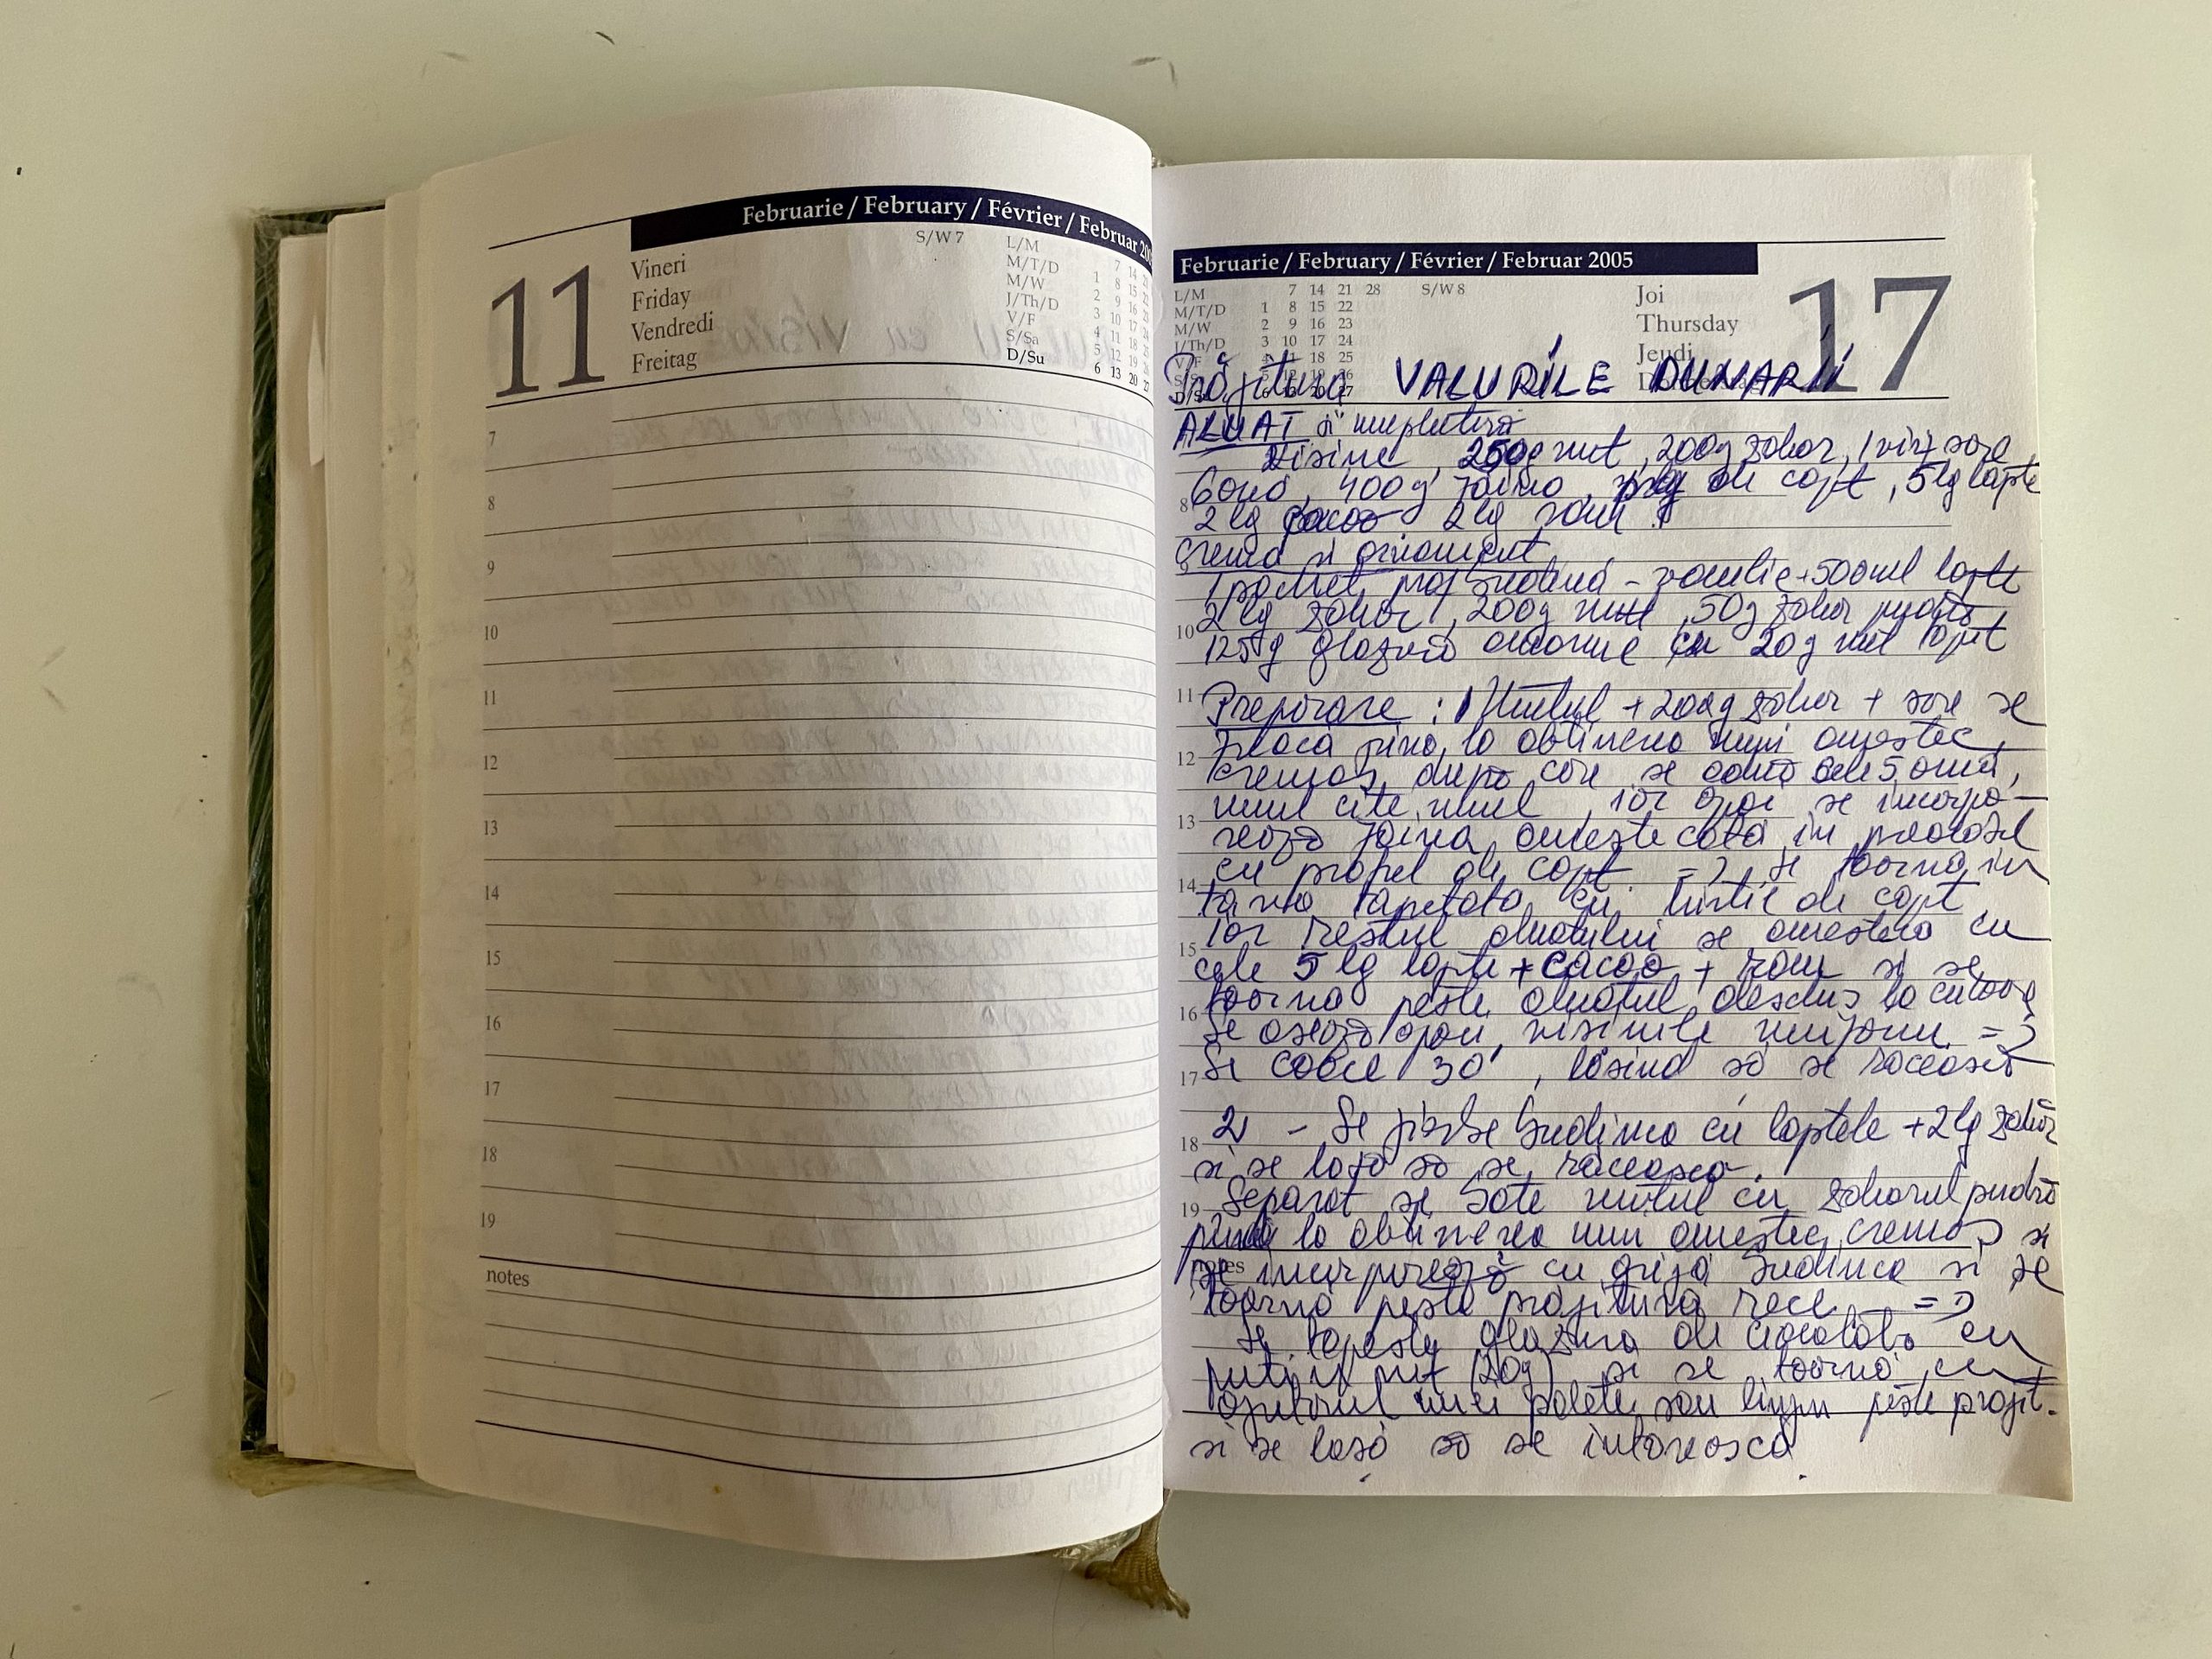 Februarie / February / Février / Februar 20
11
Vineri
Friday
Vendredi
Freitag
S/W 7
L/M 7 14
M/T/D 1 8 15
M/W 2 9 16
J/Th/D 3 10 17
V/F 4 11 18
S/Sa 5 12 19
D/Su 6 13 20 27
7
8
9
10
11
12
13
14
15
16
17
18
19
notes
Februarie / February / Février / Februar 2005
L/M 7 14 21 28 S/W 8
M/T/D 1 8 15 22
M/W 2 9 16 23
J/Th/D 3 10 17 24
V/F 4 11 18 25
Joi
Thursday
Jeudi
17
Prăjitura VALURILE DUNARII
ALUAT si umplutura
Visine, 250g unt, 200g zahar, 1 sare
6 oua, 400g faina, de copt, 5 lg lapte
8 2 lg cacao 2 lg rom
9 Crema si ornament
1 pachet praf budinca - vanilie + 500ml lapte
10 2 lg zahar, 200g unt, 50g zahar pudra
125g glazura cu 20g unt topit
11 Preparare: 1 Untul + 200g zahar + sare se
freaca pina la obtinerea unui amestec
12 cremos, dupa care se adauga cele 5 oua,
unul cite unul, iar apoi se incorpo-
13 reaza faina amestecata in prealabil
cu praful de copt. => se toarna in
14 tava tapetata cu hirtie de copt
iar restul aluatului se amesteca cu
15 cele 5 lg lapte + cacao + rom si se
toarna peste aluatul deschis la culoare
16 Se aseaza apoi visinile uniform =>
17 Se coace 30', lasind sa se raceasca
18 2 - Se fierbe budinca cu laptele + 2 lg zahar
si se lasa sa se raceasca.
19 Separat se bate untul cu zaharul pudra
pina la obtinerea unui amestec cremos si
notes se incorporeaza cu grija budinca si se
toarna peste prajitura rece =>
Se topeste glazura de ciocolata cu
putin unt (20g) si se toarna cu
ajutorul unei palete sau lingura peste prajit.
si se lasa sa se intareasca.